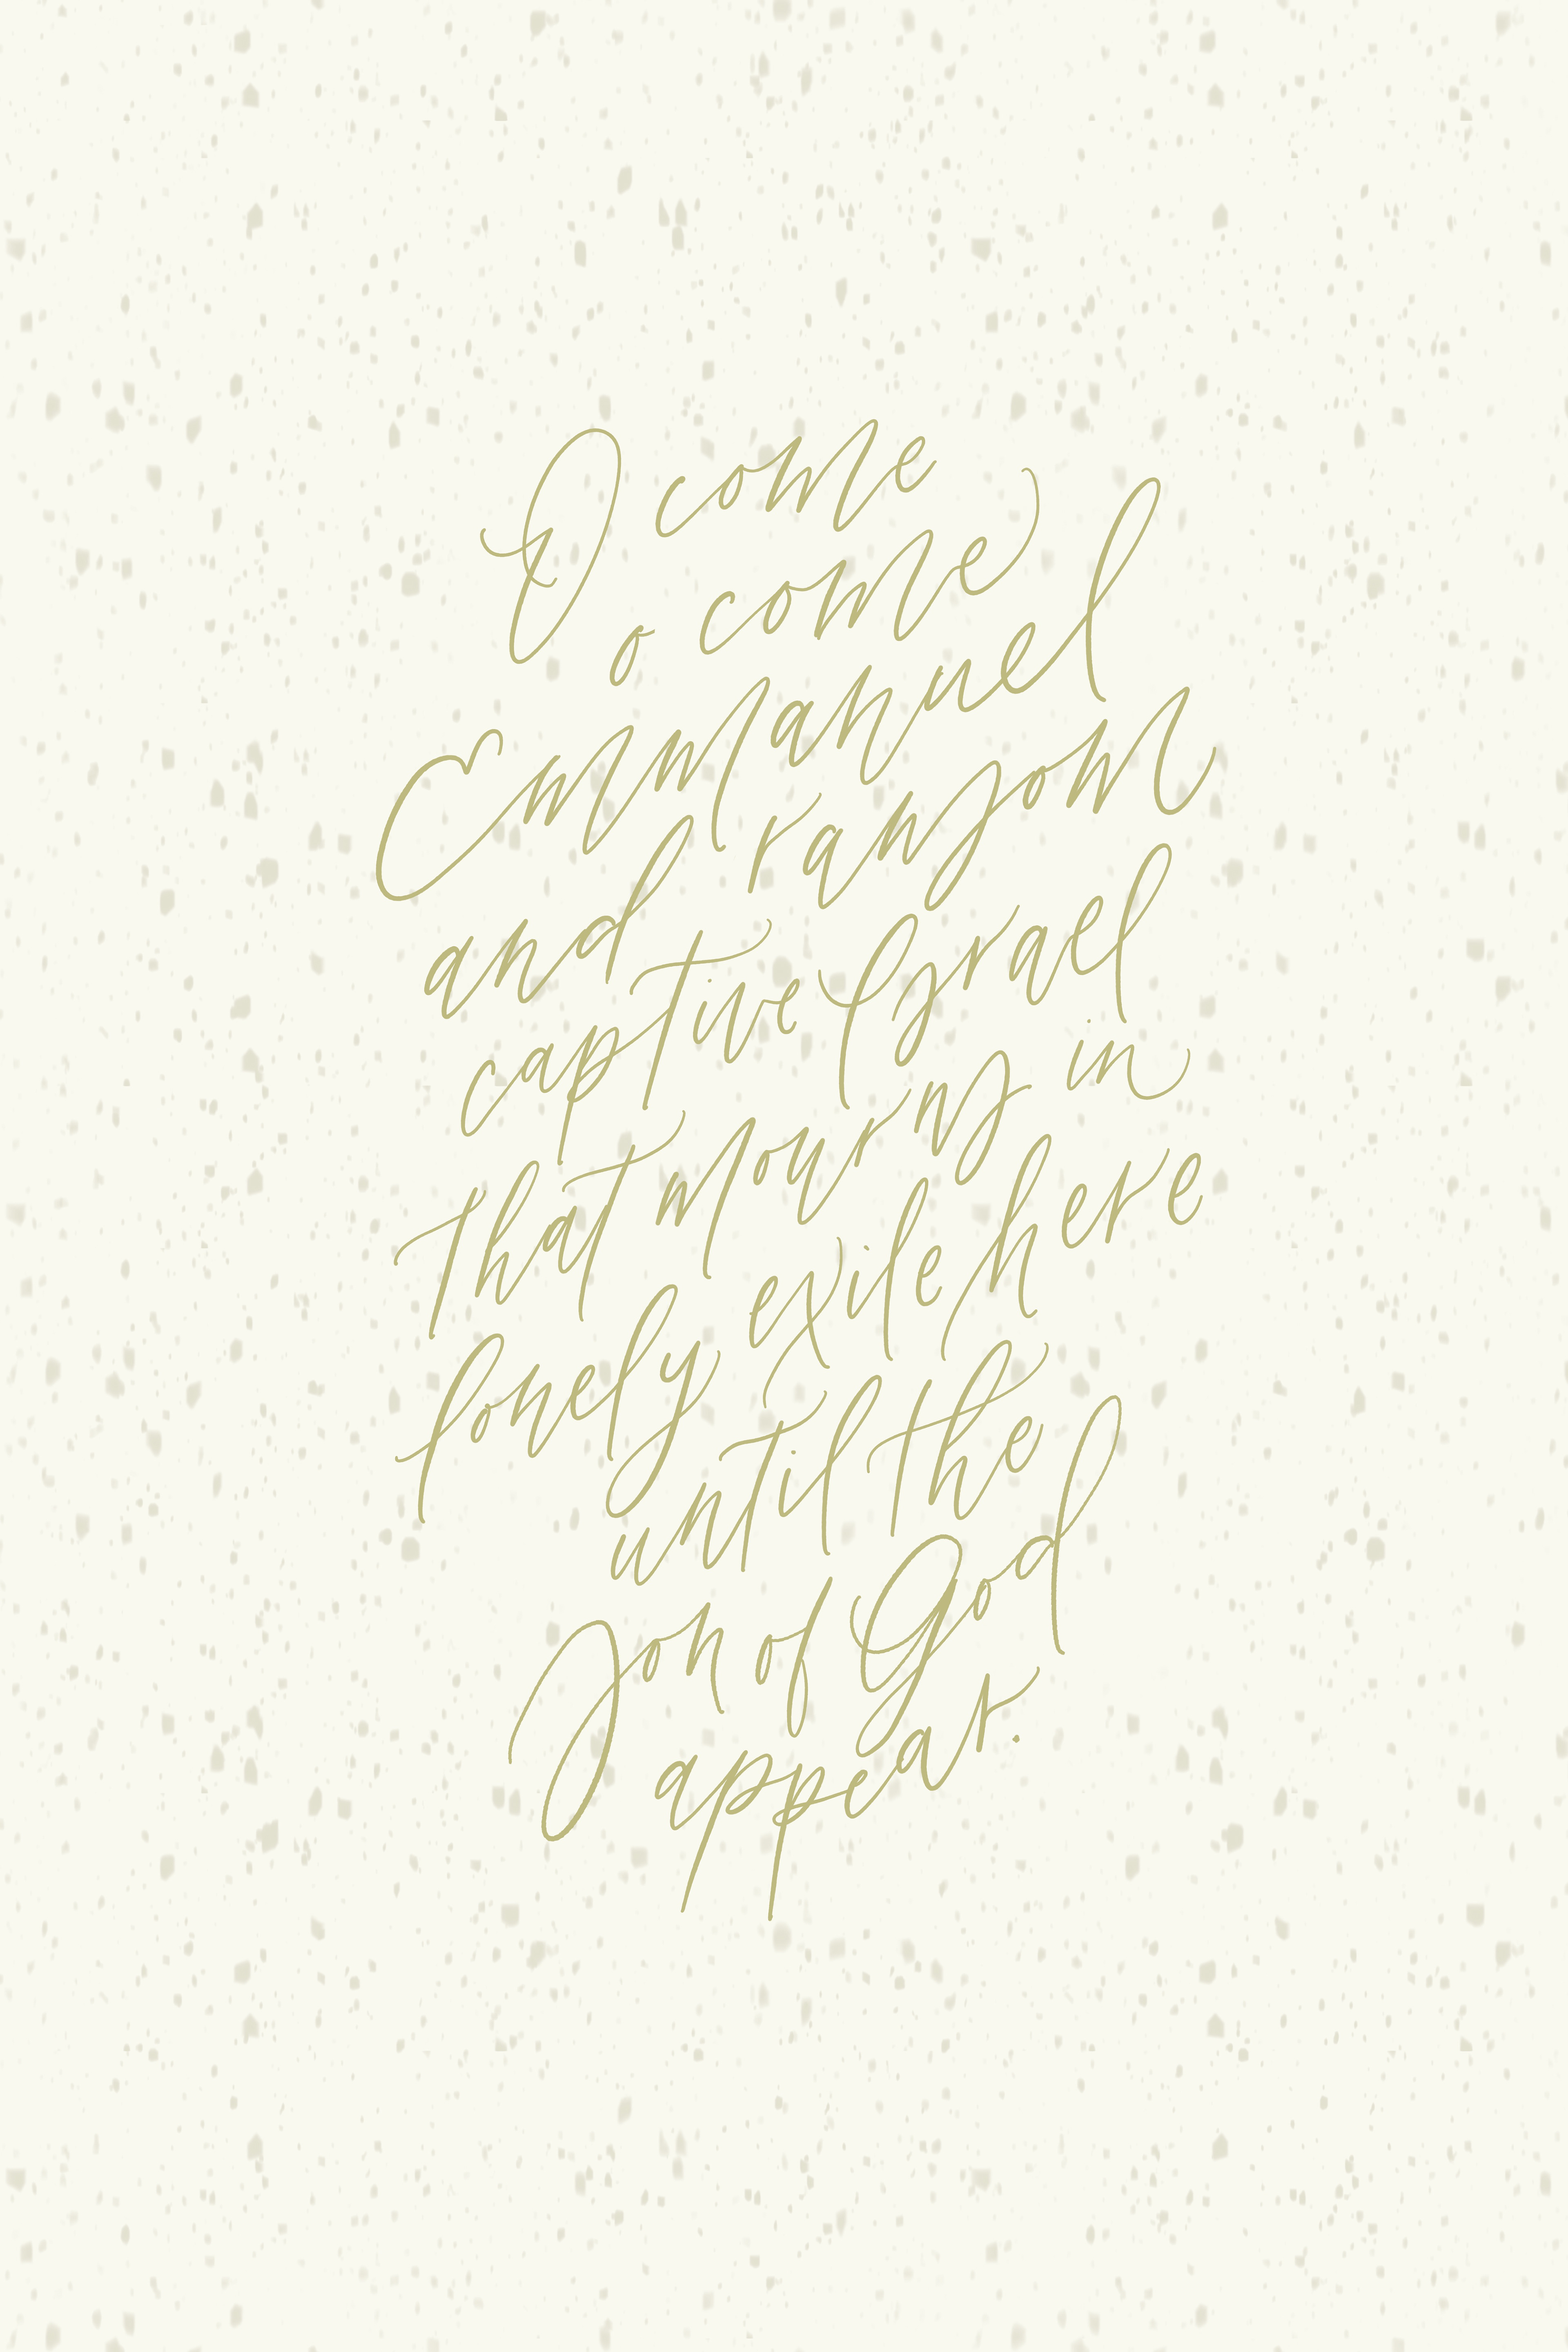 O come
o come
Emmanuel
and ransom
captive Israel
that mourns in
lonely exile here
until the
Son of God
appear.